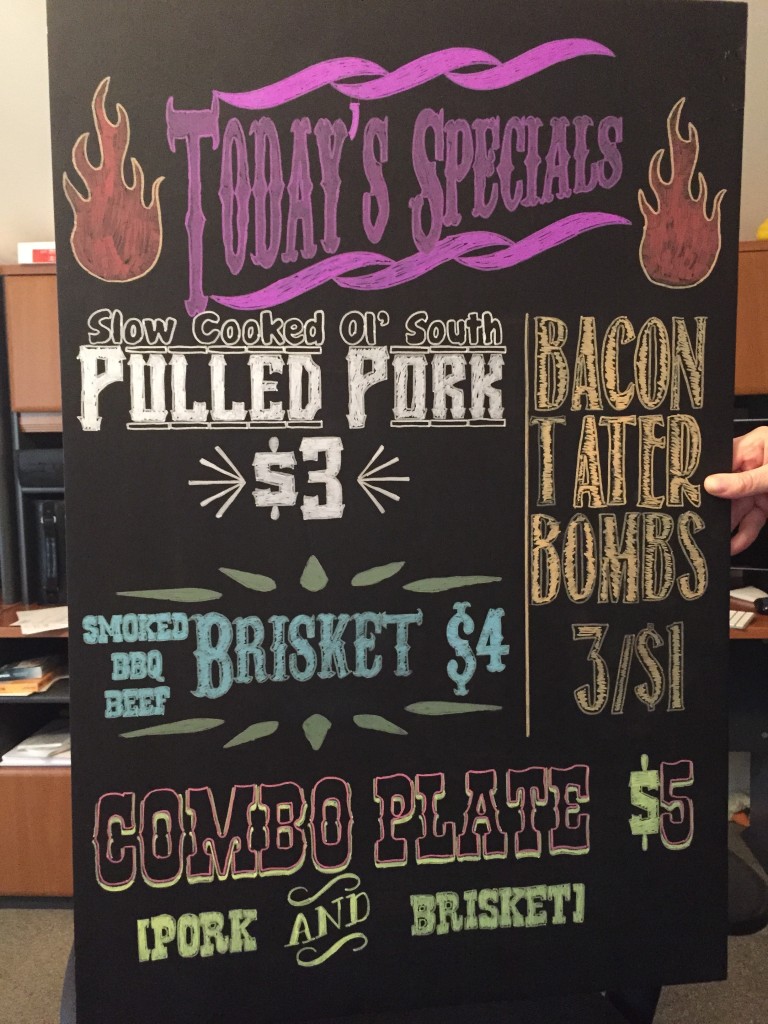 Today's Specials
Slow Cooked Ol' South
Pulled Pork
$3
Smoked
BBQ
Beef
Brisket $4
Bacon
Tater
Bombs
3/$1
Combo Plate $5
[Pork and Brisket]